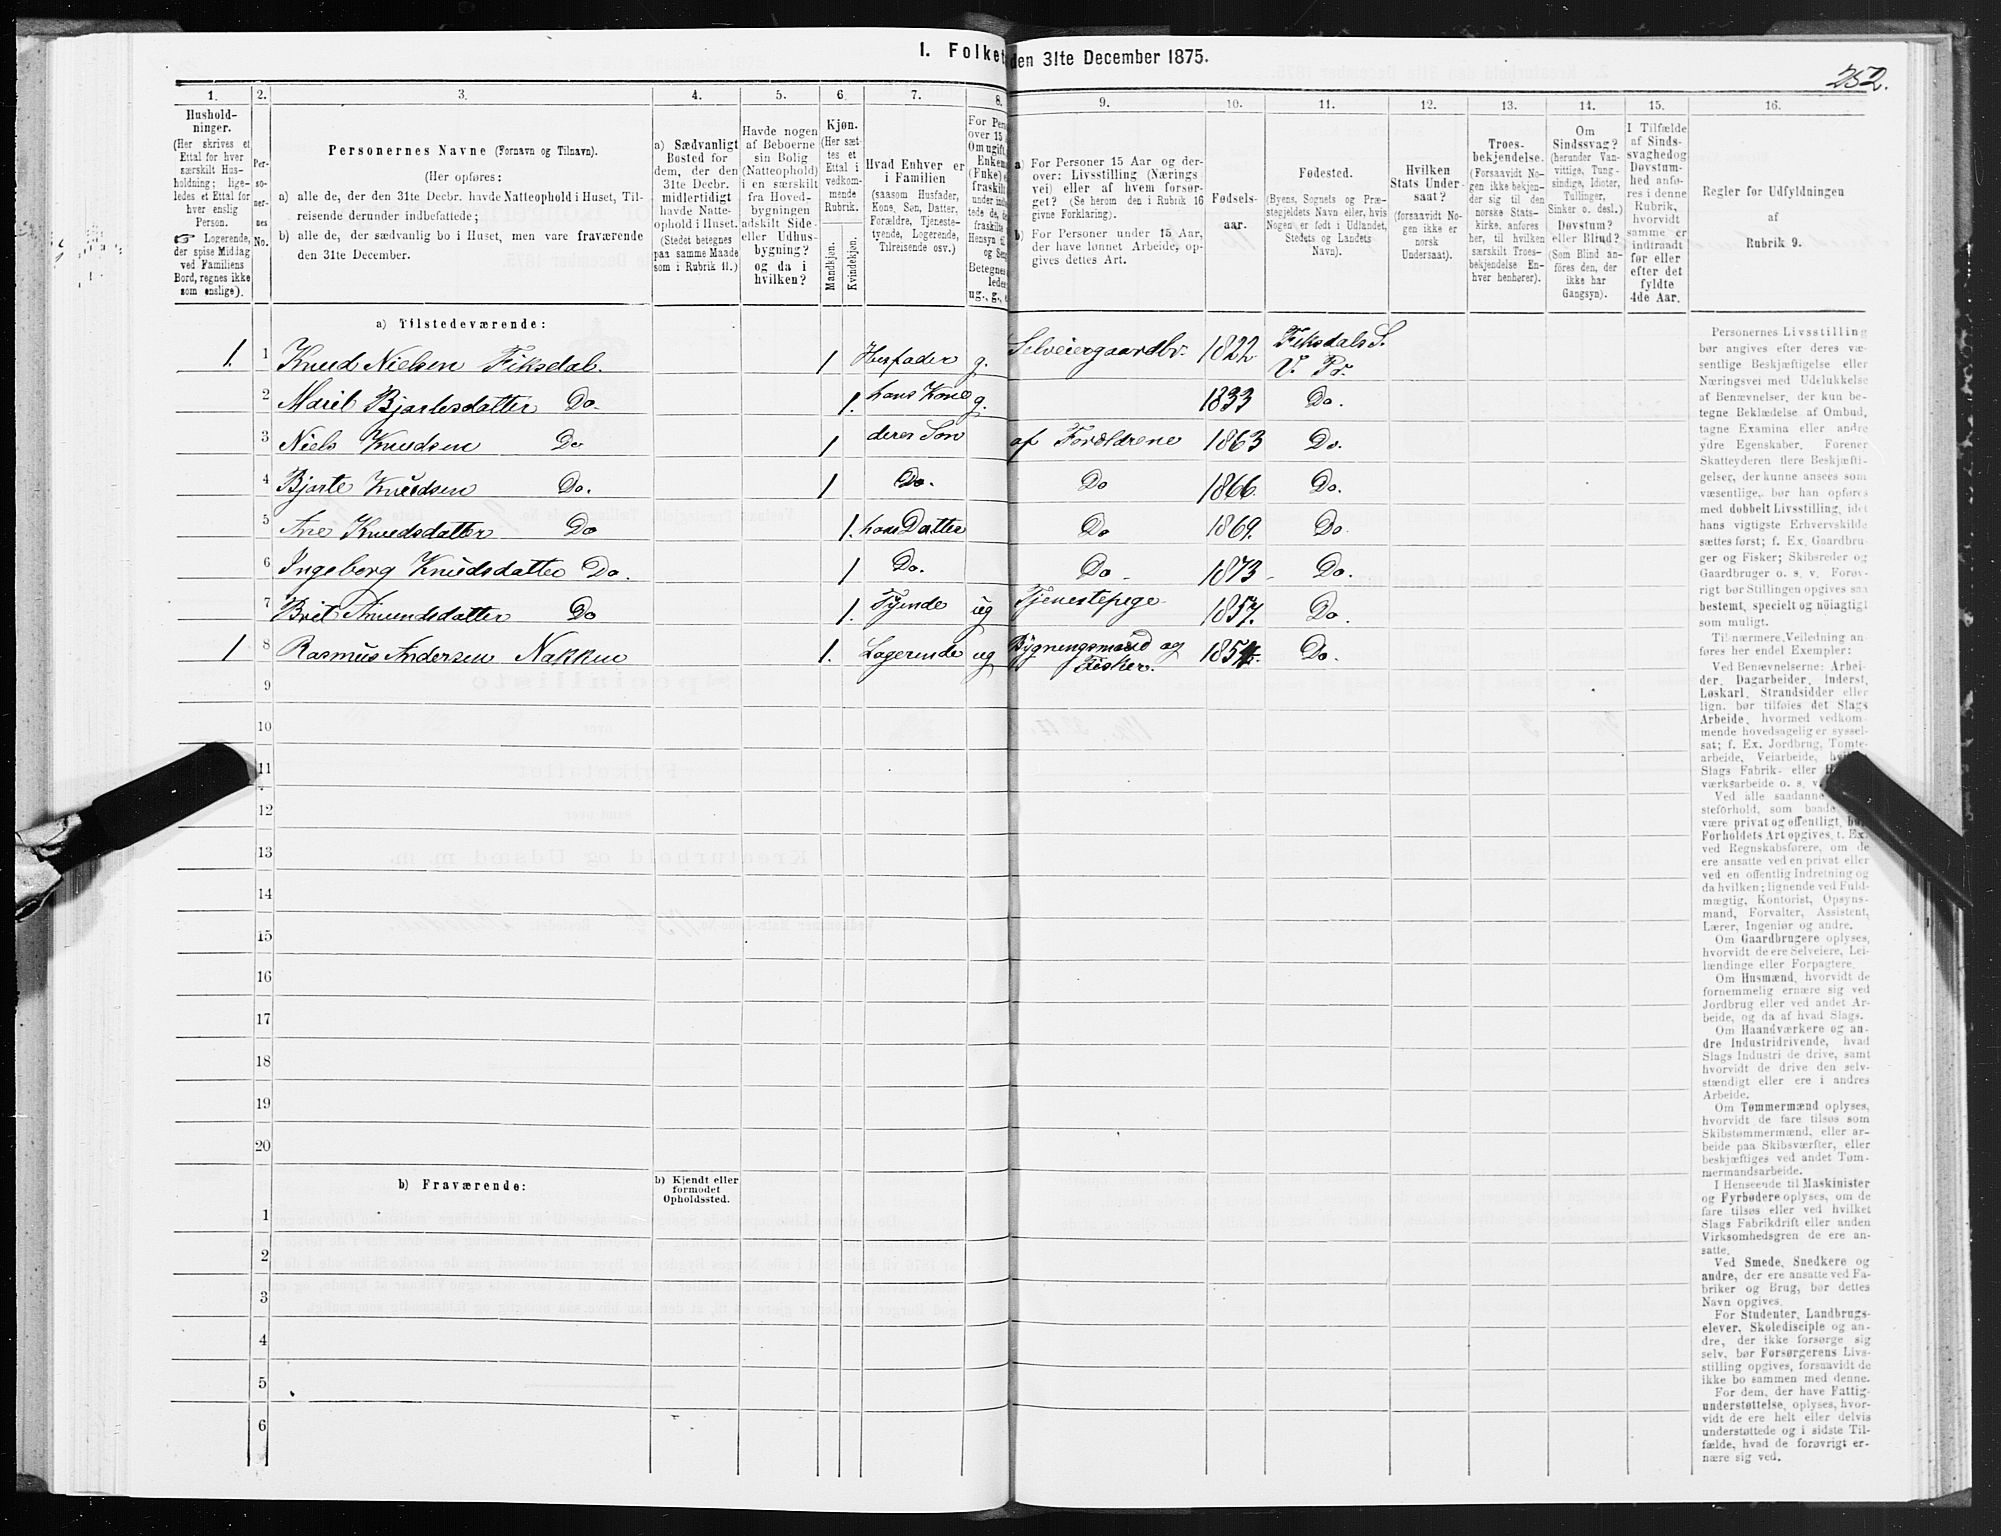 1. Folket den 31te December 1875.
252.
1. 2. 3. 4. 5. 6. 7. 8. 9. 10. 11. 12. 13. 14. 15. 16.
Hushold-
ninger.
(Her skrives et
Ettal for hver
særskilt Hus-
holdning; lige-
ledes et Ettal for
hver enslig
Person.
☞ Logerende,
der spise Middag
ved Familiens
Bord, regnes ikke
som enslige).
Per-
so-
ner-
nes
No.
Personernes Navne (Fornavn og Tilnavn).
(Her opføres:
a) alle de, der den 31te Decbr. havde Natteophold i Huset, Til-
reisende derunder indbefattede;
b) alle de, der sædvanlig bo i Huset, men vare fraværende
den 31te December.
a) Sædvanligt
Bosted for
dem, der den
31te Decbr.
midlertidigt
havde Natte-
ophold i Huset.
(Stedet betegnes
paa samme Maade
som i Rubrik 11.)
Havde nogen
af Beboerne
sin Bolig
(Natteophold)
i en særskilt
fra Hoved-
bygningen
adskilt Side-
eller Udhus-
bygning?
og da i
hvilken?
Kjøn.
(Her sæt-
tes et
Ettal i
vedkom-
mende
Rubrik.
Mandkjøn.
Kvindekjøn.
Hvad Enhver er
i Familien
(saasom Husfader,
Kone, Søn, Datter,
Forældre, Tjeneste-
tyende, Logerende,
Tilreisende osv.)
For Pers
over 15 A
Om ugift,
Enkem
(Fke) e
fraskilt
a) For Personer 15 Aar og der-
over: Livsstilling (Nærings-
vei) eller af hvem forsør-
get? (Se herom den i Rubrik 16
givne Forklaring).
b) For Personer under 15 Aar,
der have lønnet Arbeide, op-
gives dettes Art.
Fødsels-
aar.
Fødested.
(Byens, Sognets og Præ-
stegjeldets Navn eller, hvis
Nogen er født i Udlandet,
Stedets og Landets
Navn).
Hvilken
Stats Under-
saat?
(forsaavidt No-
gen ikke er
norsk
Undersaat).
Troes-
bekjendelse.
(Forsaavidt No-
gen ikke bekjen-
der sig til den
norske Stats-
kirke, anføres
her, til hvilken
særskilt Troes-
bekjendelse En-
hver henhører).
Om
Sindssvag?
(herunder Van-
vittige, Tung-
sindige, Idioter,
Tullinger,
Sinker o. desl.)
Døvstum?
eller Blind?
(Som Blind an-
føres den, der
ikke har
Gangsyn).
I Tilfælde
af Sinds-
svaghedog
Døvstum-
hed anfø-
res i denne
Rubrik,
hvorvidt
samme er
indtraadt
før eller
efter det
fyldte
4de Aar.
Regler for Udfyldningen
af
Rubrik 9.
a) Tilstedeværende:
1. 1 Knud Nielsen Fiksdal. 1 Husfader g. Selveiergaardbr. 1822 Fiksdals S. V. Pr.
2 Marit Bjartesdatter Do. 1. hans Kone g. 1833 Do.
3 Niels Knudsen Do 1 deres Søn af Forældrene 1863 Do.
4 Bjarte Knudsen Do. 1 Do. Do 1866. Do.
5 Ane Knudsdatter Do 1. hans Datter Do 1869. Do.
6 Ingeborg Knudsdatter Do. 1 Do. Do 1873 Do.
7 Brit Amundsdatter Do 1. Tyende ug Tjenestepige 1857. Do.
1 8 Rasmus Andersen Nakken 1. Logerende ug Bygningsmand og Fisker. 1854. Do.
9
10
11
12
13
14
15
16
17
18
19
20
b) Fraværende: b) Kjendt eller
formodet
Opholdssted.
1
2
3
4
5
6
Personernes Livsstilling
bør angives efter deres væ-
sentlige Beskjæftigelse eller
Næringsvei med Udelukkelse
af Benævnelser, der kun be-
tegne Beklædelse af Ombud,
tagne Examina eller andre
ydre Egenskaber. Forener
Skatteyderen flere Beskjæfti-
gelser, der kunne ansees som
væsentlige, bør han opføres
med dobbelt Livsstilling, idet
hans vigtigste Erhvervskilde
sættes først; f. Ex. Gaardbru-
ger og Fisker; Skibsreder og
Gaardbruger o. s. v. Forøv-
rigt bør Stillingen opgives saa
bestemt, specielt og nøiagtigt
som muligt.
Til nærmere Veiledning an-
føres her endel Exempler:
Ved Benævnelserne: Arbei-
der, Dagarbeider, Inderst,
Løskarl, Strandsidder eller
lign. bør tilføies det Slags
Arbeide, hvormed vedkom-
mende hovedsagelig er syssel-
sat; f. Ex. Jordbrug, Tomte-
arbeide, Veiarbeide,
Slags Fabrik- eller
værksarbeide o. s. v.
Ved alle saadanne
steforhold, som baade
være privat og offentligt, bør
Forholdets Art opgives, t. Ex.
ved Regnskabsførere, om de
ere ansatte ved en privat eller
ved en offentlig Indretning og
da hvilken; lignende ved Fuld-
mægtig, Kontorist, Opsyns-
mand, Forvalter, Assistent,
Lærer, Ingeniør og andre.
Om Gaardbrugere oplyses,
hvorvidt de ere Selveiere, Lei-
lændinge eller Forpagtere.
Om Husmænd, hvorvidt de
fornemmelig ernære sig ved
Jordbrug eller ved andet Ar-
beide, og da af hvad Slags.
Om Haandværkere og an-
dre Industridrivende, hvad
Slags Industri de drive, samt
hvorvidt de drive den selv-
stændigt eller ere i andres
Arbeide.
Om Tømmermænd oplyses,
hvorvidt de fare tilsøs som
Skibstømmermænd, eller ar-
beide paa Skibsværfter, eller
beskjæftiges ved andet Tøm-
mermandsarbeide.
I Henseende til Maskinister
og Fyrbødere oplyses, om de
fare tilsøs eller ved hvilket
Slags Fabrikdrift eller anden
Virksomhedsgren de ere an-
satte.
Ved Smede, Snedkere og
andre, der ere ansatte ved Fa-
briker og Brug, bør dettes
Navn opgives.
For Studenter, Landbrugs-
elever, Skoledisciple og an-
dre, der ikke forsørge sig
selv, bør Forsørgerens Livs-
stilling opgives, forsaavidt de
ikke bo sammen med denne.
For dem, der have Fattig-
understøttelse, oplyses, hvor-
vidt de ere helt eller delvis
understøttede og i sidste Til-
fælde, hvad de forøvrigt er-
nære sig ved.